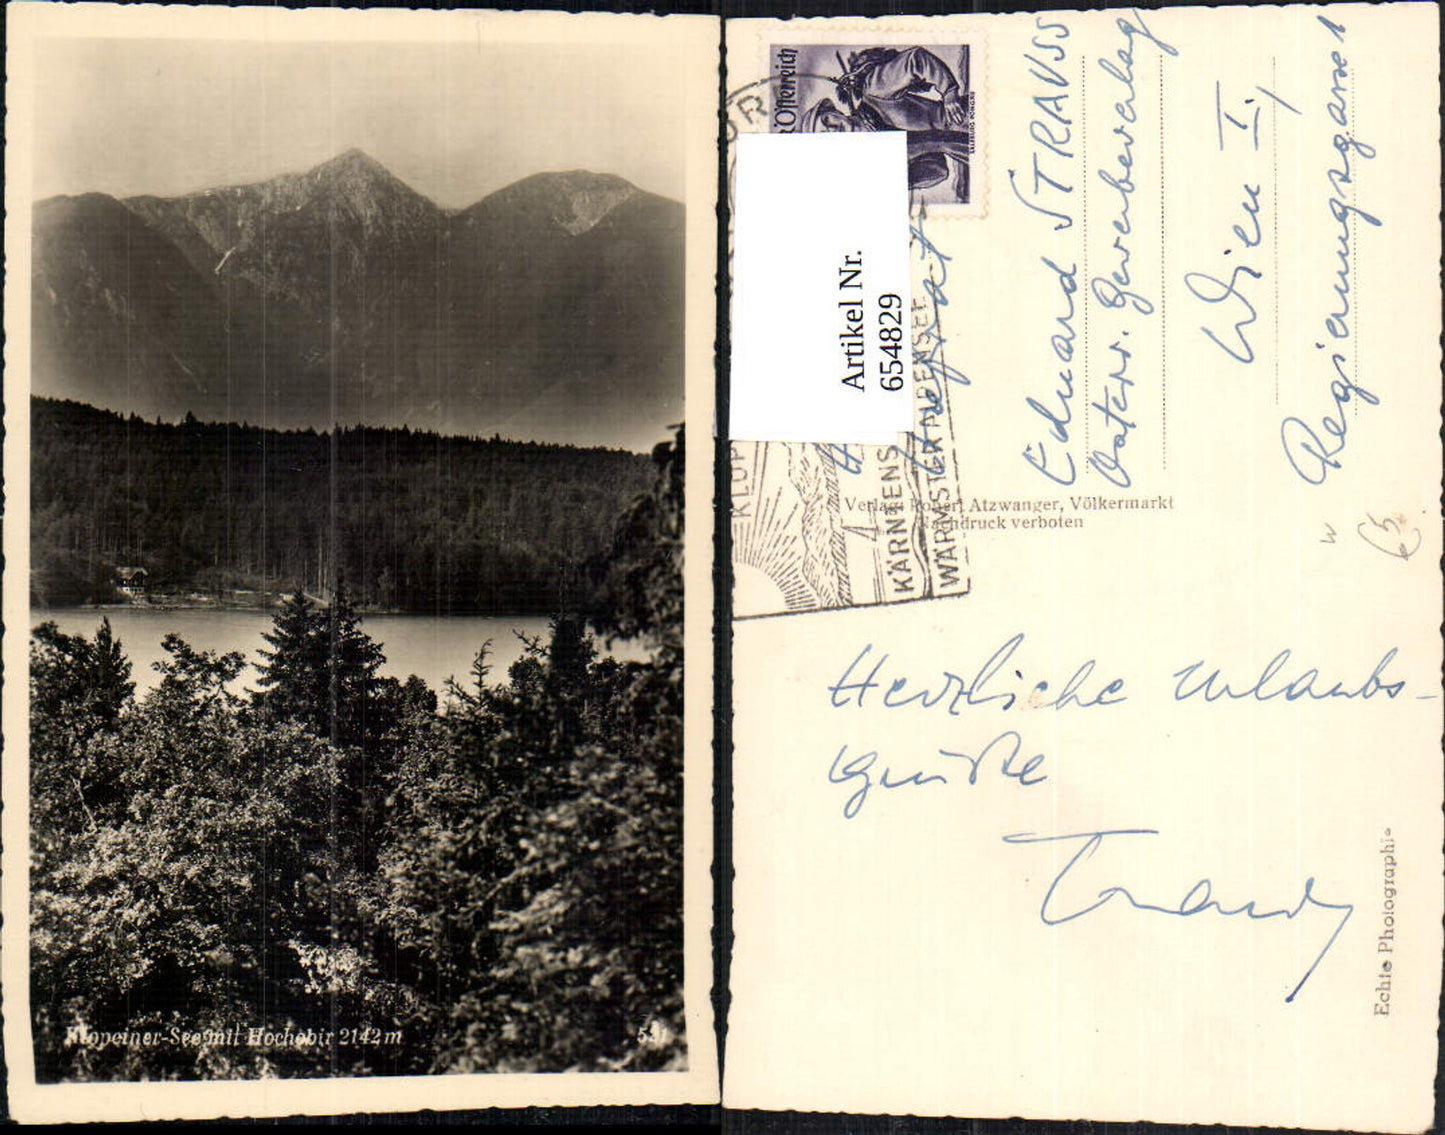 Klopeiner-See mit Hochobir 2142 m
531
Österreich
Artikel Nr.
654829
KLOP
KÄRNTENS
WÄRMSTER BADESEE
Eduard STRAUSS
Österr. Gewerbeverlag
Wien I,
Regierungsgasse 1
Verlag Robert Atzwanger, Völkermarkt
Nachdruck verboten
65
Herzliche Urlaubs-
grüße
Echte Photographie